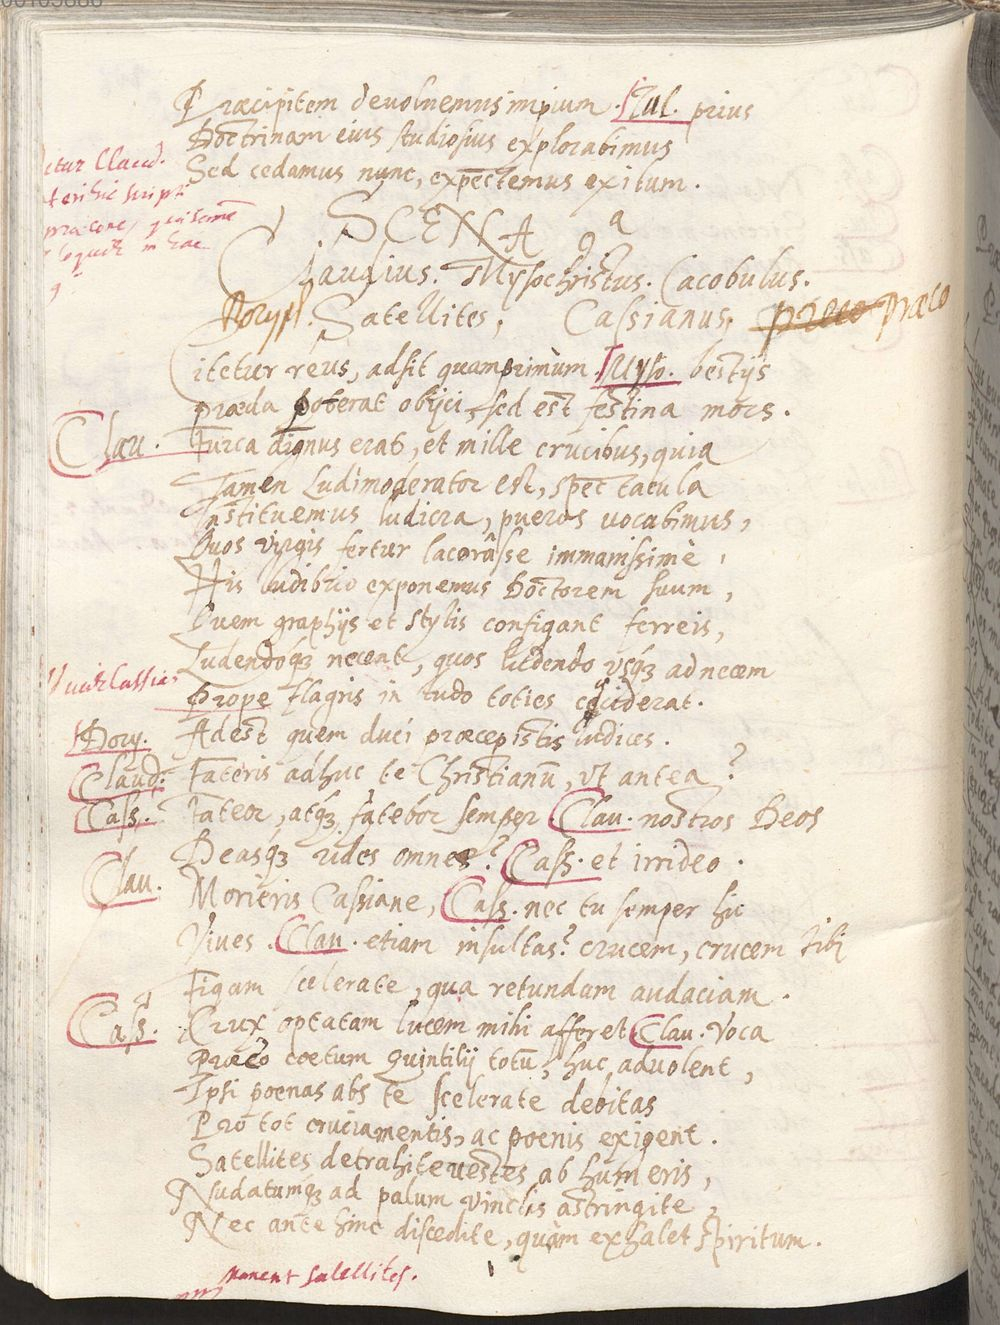 Præcipitem devoluemus impium. Iul. prius
Doctrinam eius studiosius explorabimus
Sed cedamus nunc, expectemus exitum.
SCENA 9a
Claudius. Mysochristus. Cacobulus.
Doryph. Satellites, Cassianus, præco Præco
Citetur reus, adsit quamprimùm. Myso. bestijs
præda poterat obijci, sed est festina mors.
Clau. Furca dignus erat, et mille crucibus, quia
Tamen Ludimoderator est, spectacula
Instituemus ludicra, pueros vocabimus,
Quos virgis fertur lacerâsse immanissimè,
His ludibrio exponemus Doctorem suum,
Quem graphijs et stylis configant ferreis,
Ludendoq3 necent, quos ludendo usq3 ad necem
Prope flagris in ludo toties ceciderat.
Dory. Adest quem duci præcepistis iudices.
Claud: Fateris adhuc te Christianū, ut antea?
Cass. Fateor, atq3 fatebor semper. Clau. nostros Deos
Deasq3 rides omnes? Cass. et irrideo.
Clau. Morieris Cassiane, Cass. nec tu semper hic
Vives. Clau. etiam insultas? crucem, crucem tibi
Figam scelerate, qua retundam audaciam.
Cass. Crux optatam lucem mihi afferet Clau. Voca
Præco coetum Quintilij totū, huc advolent,
Ipsi poenas abs te scelerate debitas
Pro tot cruciamentis, ac poenis exigent.
Satellites detrahite vestes ab humeris,
Nudatumq3 ad palum vinclis astringite,
Nec ante hinc discedite, quàm exhalet spiritum.
manent satellites.